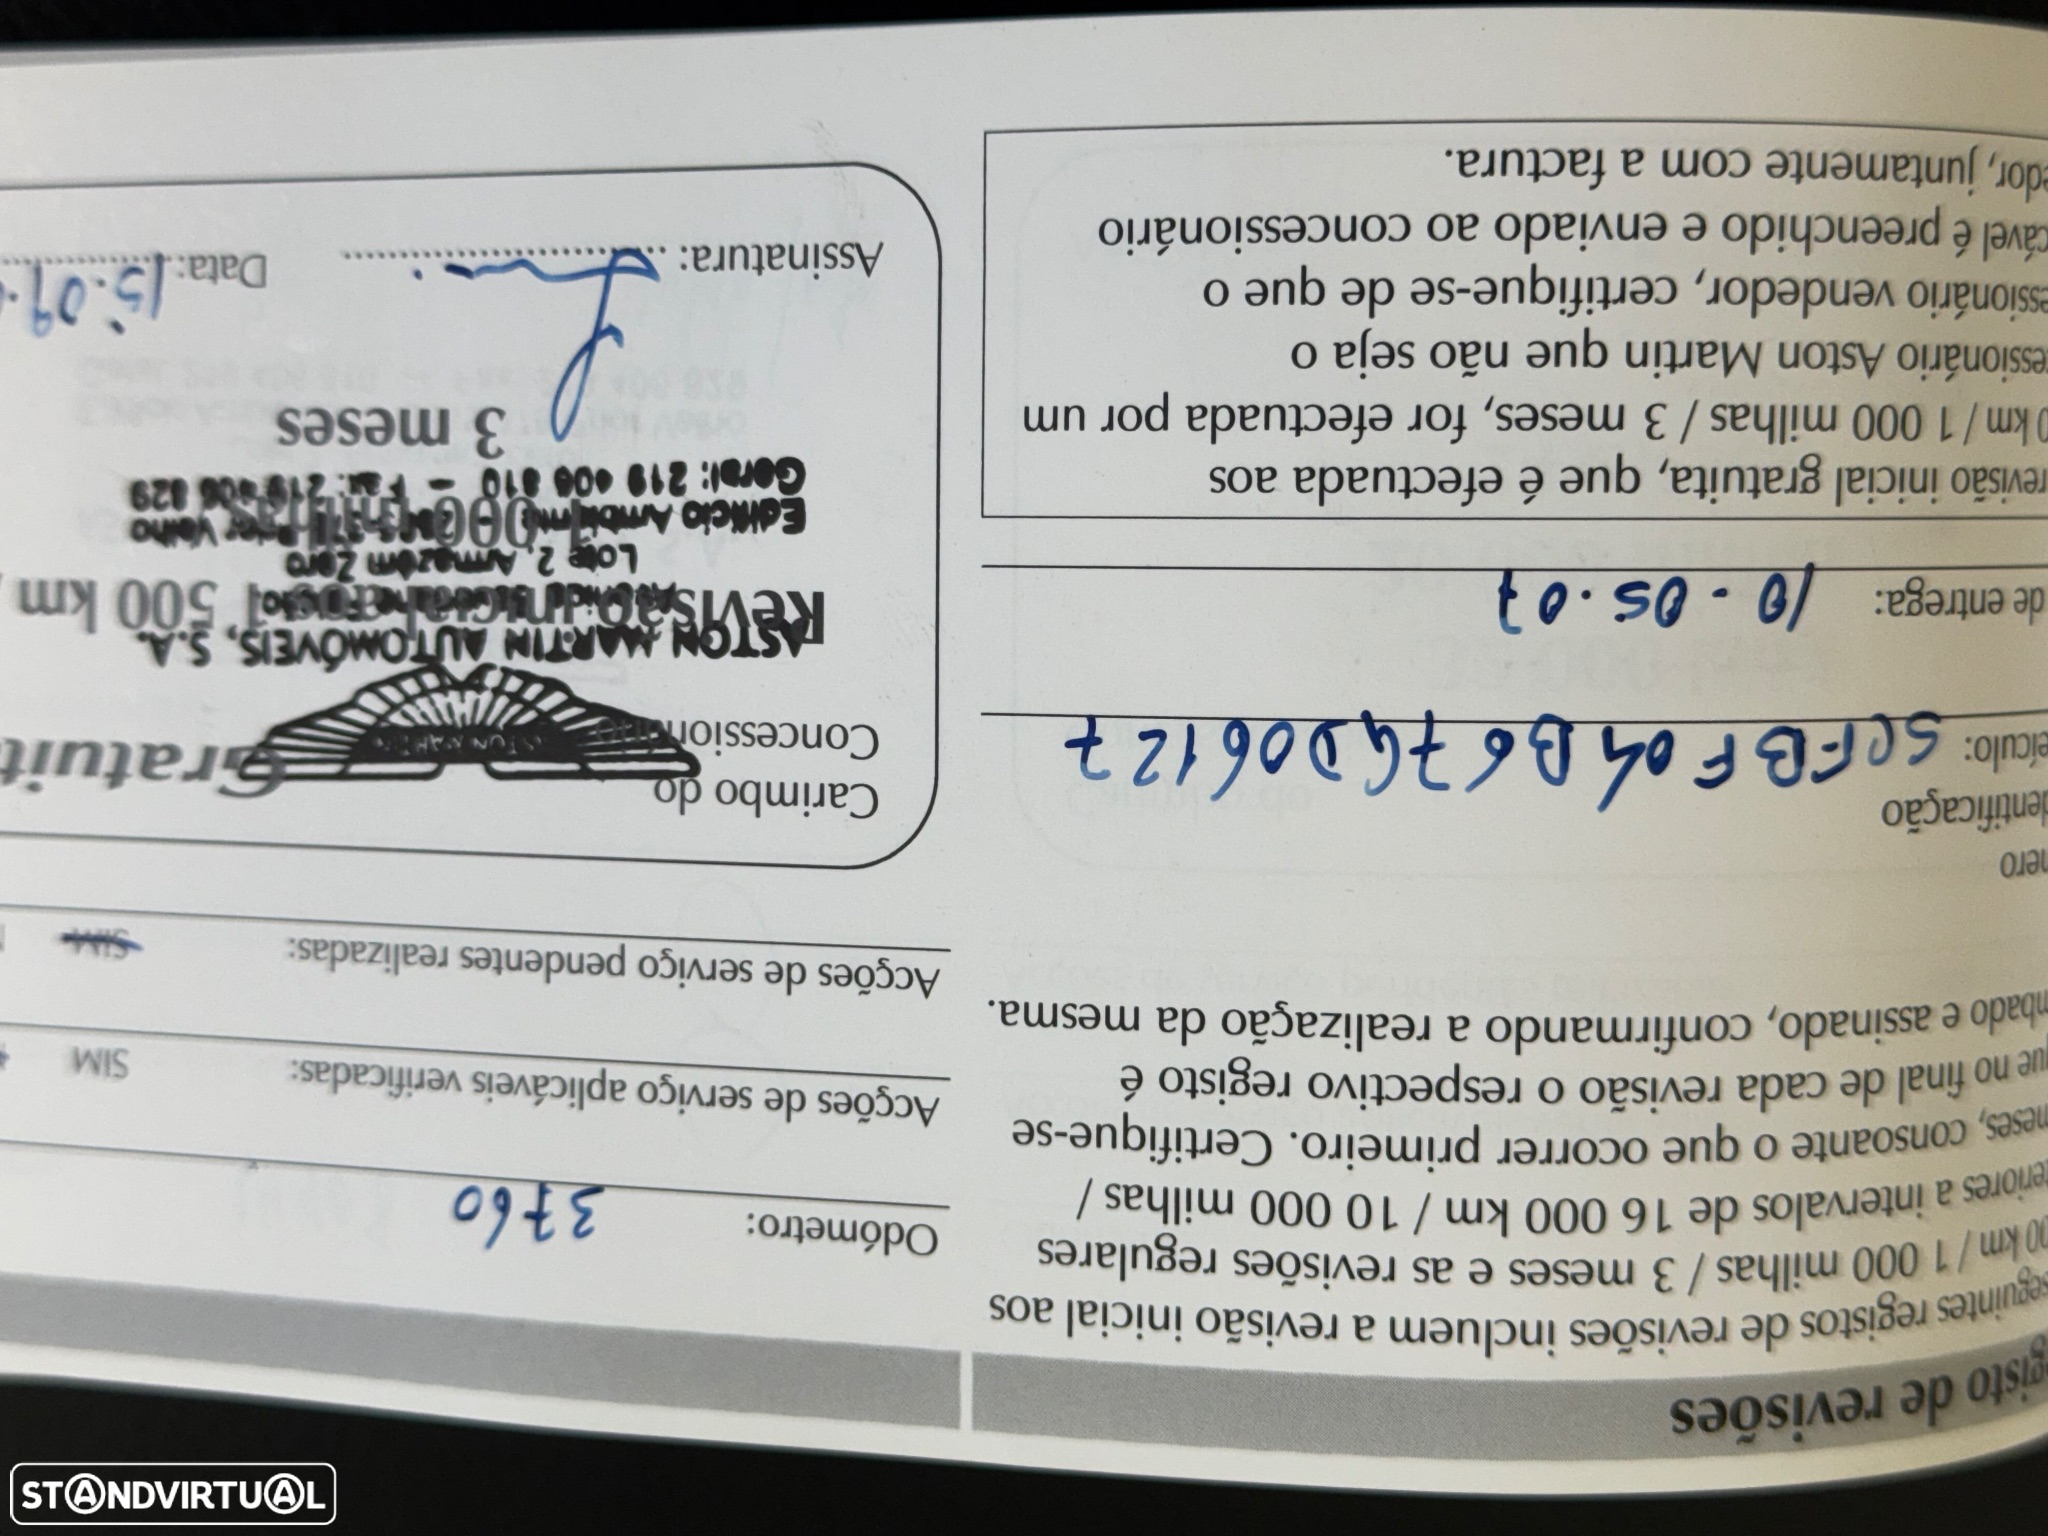 gisto de revisões
seguintes registos de revisões incluem a revisão inicial aos
00 km / 1 000 milhas / 3 meses e as revisões regulares
teriores a intervalos de 16 000 km / 10 000 milhas /
meses, consoante o que ocorrer primeiro. Certifique-se
que no final de cada revisão o respectivo registo é
mbado e assinado, confirmando a realização da mesma.
mero
dentificação
eículo: SCFBF04B67GD06127
de entrega: 10.05.07
revisão inicial gratuita, que é efectuada aos
0 km / 1 000 milhas / 3 meses, for efectuada por um
essionário Aston Martin que não seja o
essionário vendedor, certifique-se de que o
cável é preenchido e enviado ao concessionário
edor, juntamente com a factura.
Odómetro: 3760
Acções de serviço aplicáveis verificadas: SIM
Acções de serviço pendentes realizadas: SIM
Carimbo do
Concessionário
Gratuit
ASTON MARTIN AUTOMÓVEIS, S.A.
Revisão inicial 1 500 km /
Lote 2, Armazém Zero
Edifício Ambiente
1 000 milhas
Geral: 219 406 810 - Fax: 219 406 829
3 meses
Assinatura:
Data: 15.09.
STANDVIRTUAL